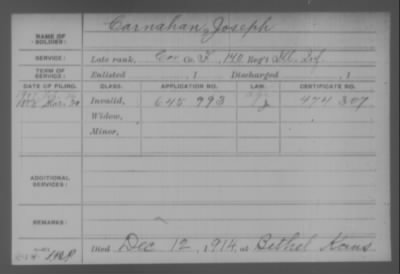 Carnahan, Joseph
NAME OF
SOLDIER:
SERVICE:
Late rank, Cor Co. F, 140 Reg't Ill. Inf.
TERM OF
SERVICE:
Enlisted , 1 Discharged , 1
DATE OF FILING.
CLASS.
APPLICATION NO.
LAW.
CERTIFICATE NO.
1888 Mar. 29
Invalid,
645 993
474 307
Widow,
Minor,
ADDITIONAL
SERVICES:
REMARKS:
Died Dec 12, 1914, at Bethel Kans.